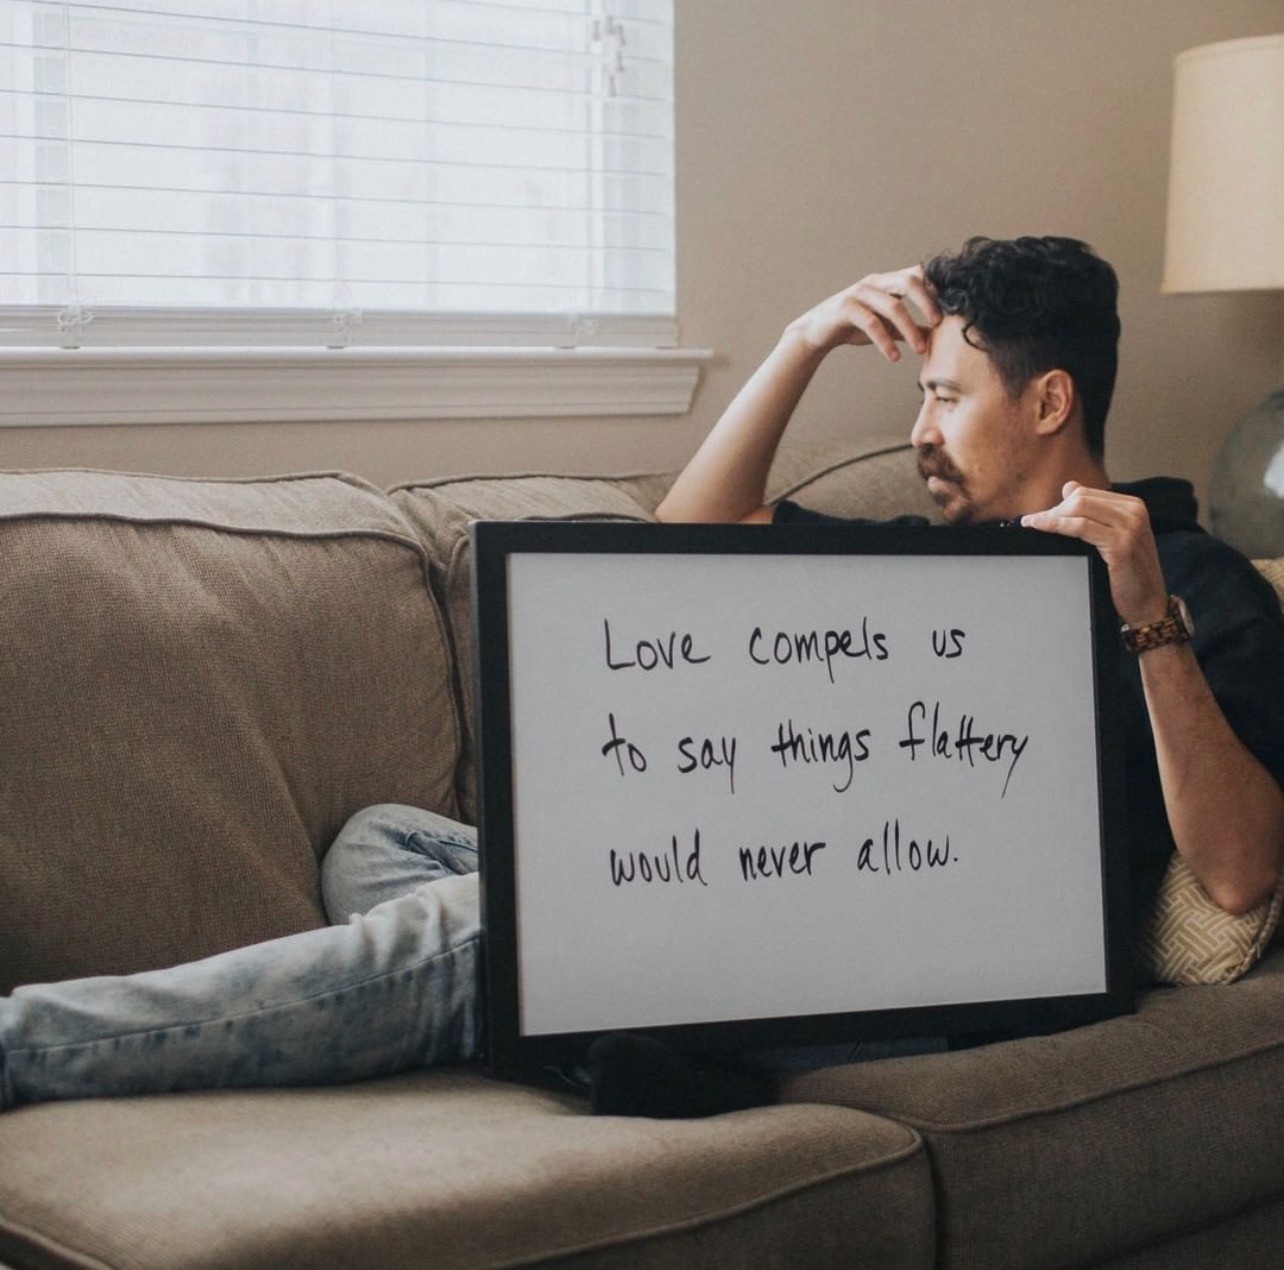 Love compels us
to say things flattery
would never allow.